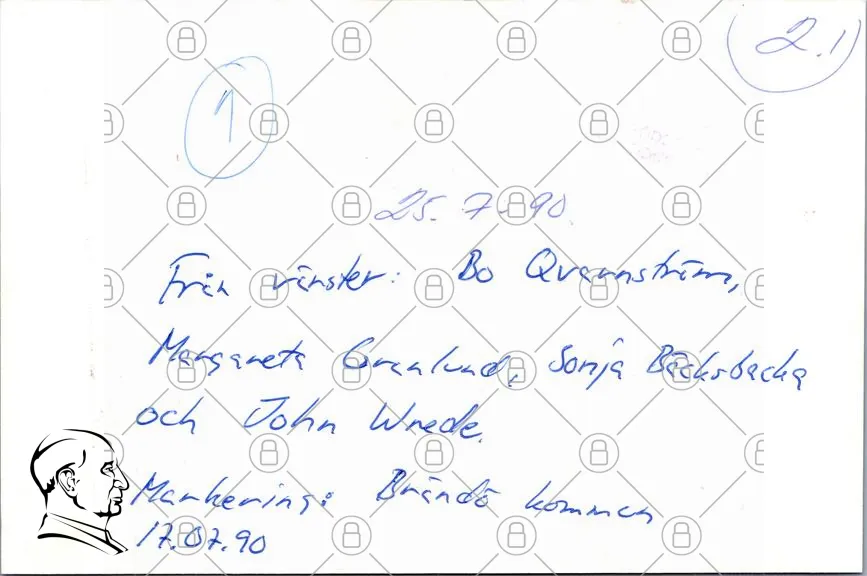 2.1
1
25.7-90.
Från vänster: Bo Qvarnström,
Margareta Granlund, Sonja Bäcksbacka
och John Wrede.
Markering: Brändö kommun
17.07.90